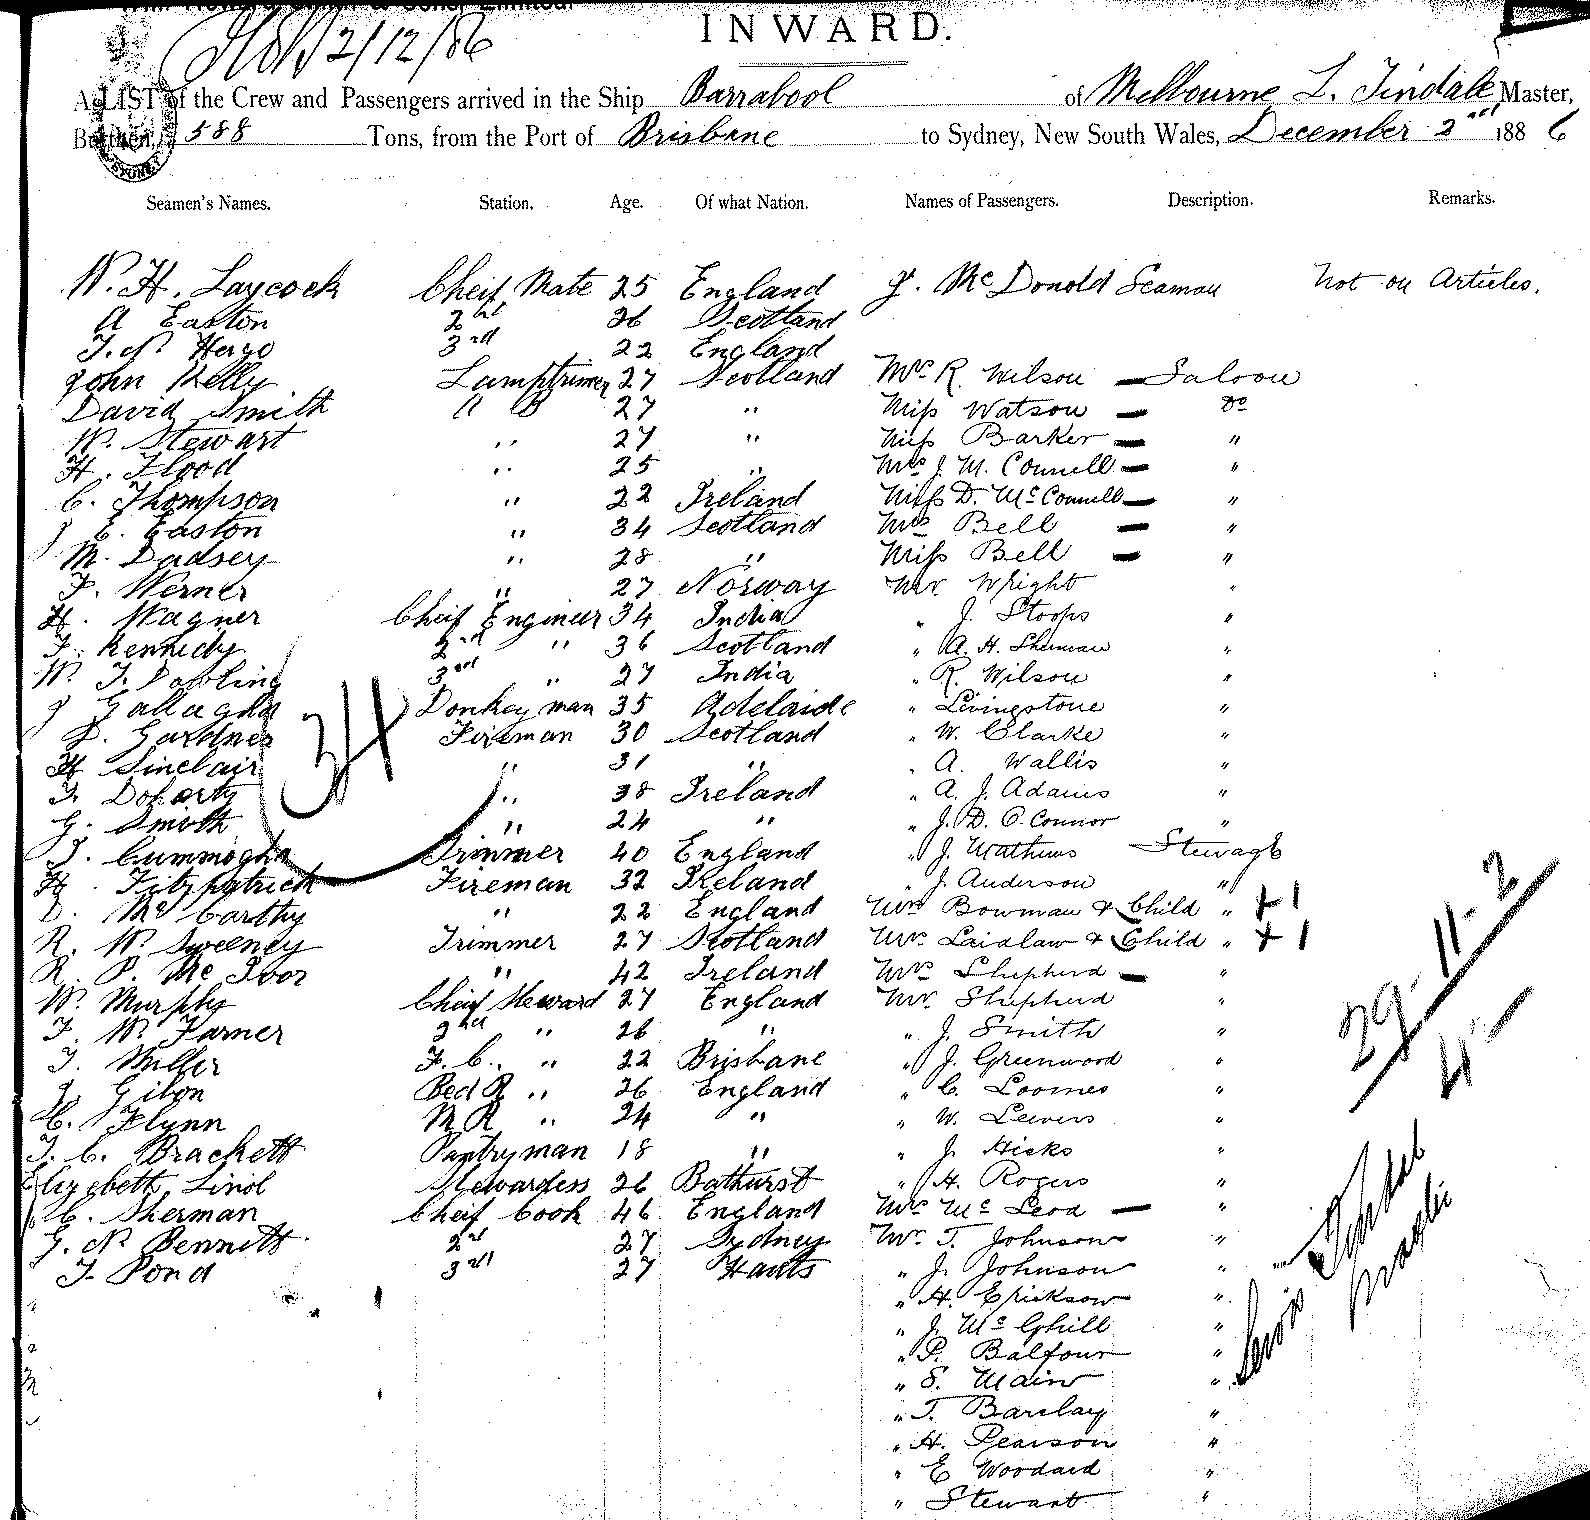 INWARD.
2/12/86
A LIST of the Crew and Passengers arrived in the Ship Barrabool of Melbourne L. Tindale Master,
Burthen, 588 Tons, from the Port of Brisbane to Sydney, New South Wales, December 2nd 1886
Seamen's Names. Station. Age. Of what Nation. Names of Passengers. Description. Remarks.
W. H. Laycock Cheif Mate 25 England J. McDonold Seaman Not on Articles.
A Easton 2nd 26 Scotland
3rd 22 England
John Kelly Lamptrimer 27 Scotland Mrs R. Wilson — Saloon
David Smith A B 27 " Miss Watson — Do
W. Stewart " 27 " Miss Barker — "
H. Flood " 25 " Mrs J. M. Connell — "
C. Thompson " 22 Ireland Miss D. McConnell — "
J E. Easton " 34 Scotland Mrs Bell — "
M. Dadsey " 28 " Miss Bell — "
F. Werner " 27 Norway Mr. Wright "
H. Wagner Cheif Engineer 34 India " J. Stoops "
F. Kennedy 2nd " 36 Scotland " A. H. Sherman "
W. J. Dowling 3rd " 27 India " R. Wilson "
J Gallagher Donkeyman 35 Adelaide " Livingstone "
D. Gardner Fireman 30 Scotland " W. Clarke "
H Sinclair " 31 " " A. Wallis "
J. Doharty " 38 Ireland " A. J. Adams "
G. Smith " 24 " " J. D. O.Connor "
Trimmer 40 England " J. Mathews Steerage
H. Fitzpatrick Fireman 32 Ireland " J. Anderson "
D. McCarthy " 22 England Mrs Bowman & Child " +1
R. W. Sweeney Trimmer 27 Scotland Mrs Laidlaw & Child " +1
R. P. McIvor " 42 Ireland Mrs Shepherd — "
W. Murphy Cheif Steward 27 England Mr. Shepherd "
F. W. Farner 2nd " 26 " " J. Smith "
T. Miller F. C. " 22 Brisbane " J. Greenwood "
J. Gibon Bed R " 26 England " C. Loomes "
C. Flynn M R " 24 " " W. Leevers "
T. C. Brackett Pantryman 18 " " J. Hicks "
Elizebeth Linol Stewardess 26 Bathurst " H. Rogers "
C. Sherman Cheif Cook 46 England Mrs McLeod — "
G. N. Bennett 2nd 27 Sydney Mr. T. Johnson "
J. Pond 3rd 27 Hants " J. Johnson "
" H. Erickson "
" J. McGhill "
" P. Balfour "
" S. Main "
" T. Barclay "
" H. Pearson "
" E Woodard "
" Stewart "
34
29-11-2
4-